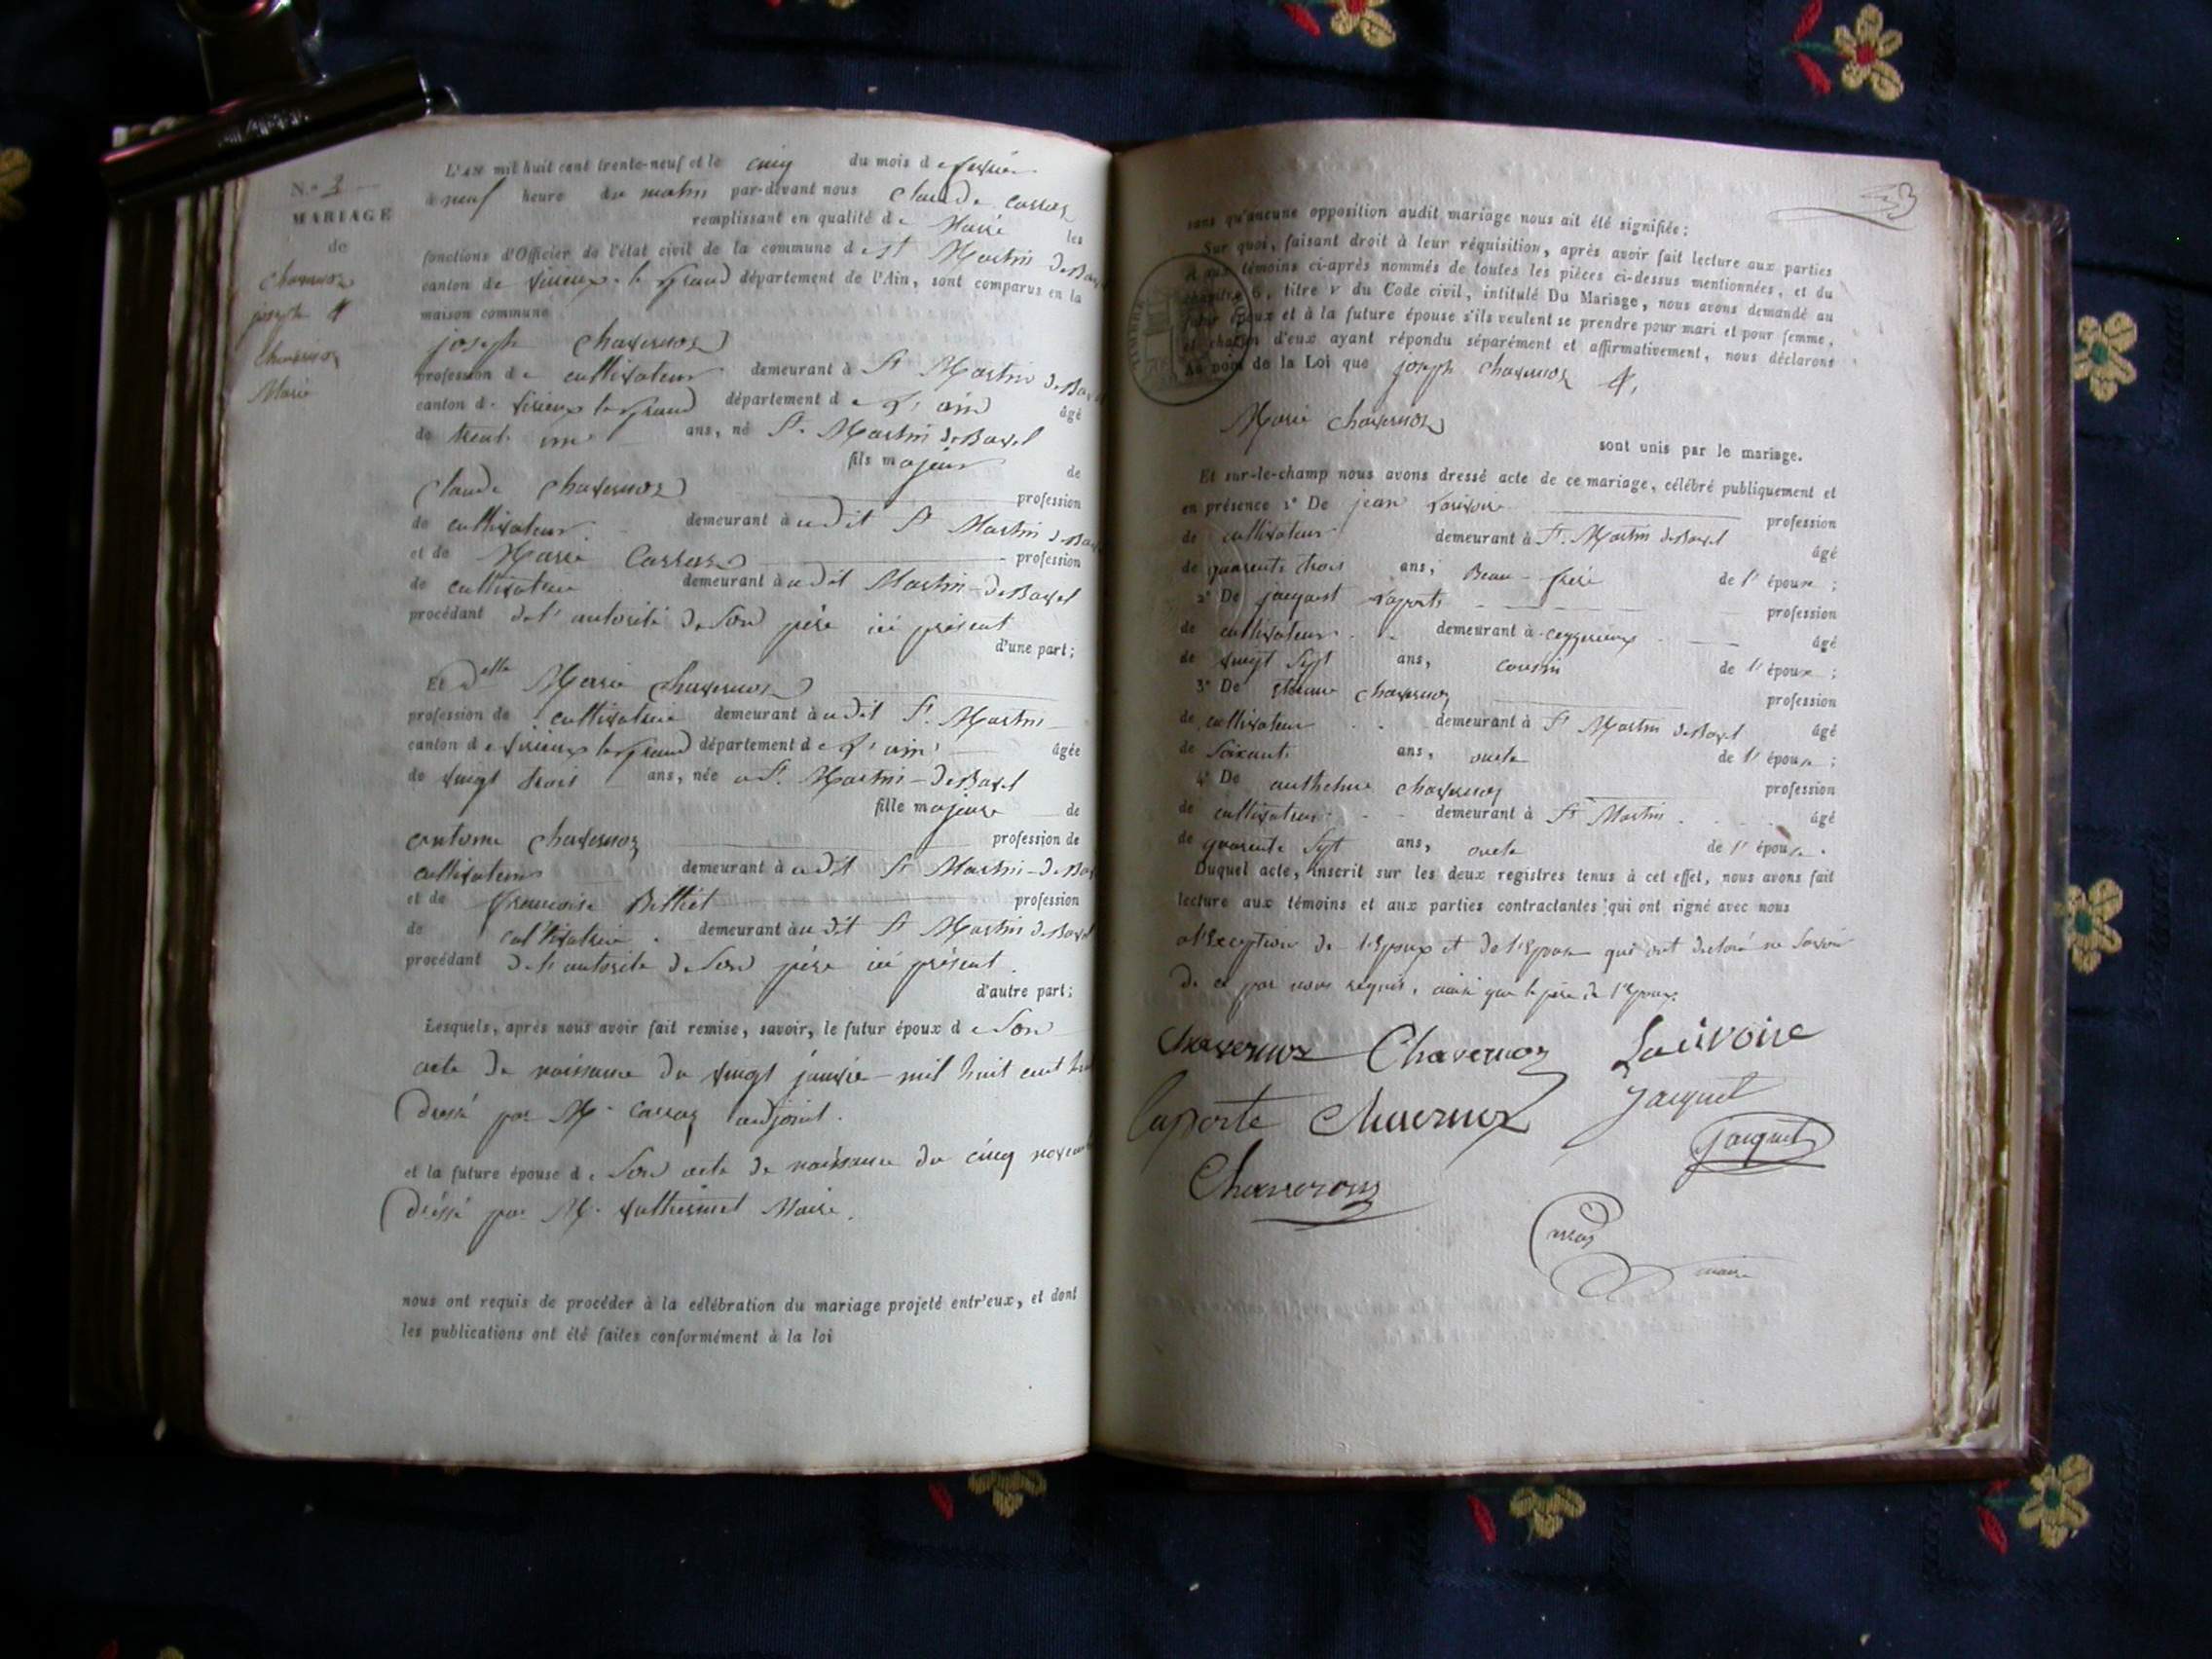 N.o 3
MARIAGE
de
Chavernoz
joseph &
Chavernoz
Marie
L'AN mil huit cent trente-neuf et le cinq du mois de fevrier
à neuf heure du matin par-devant nous Claude Carraz
remplissant en qualité de Maire les
fonctions d'Officier de l'état civil de la commune de St Martin De Bavel
canton de virieux le grand département de l'Ain, sont comparus en la
maison commune
joseph Chavernoz
profession de cultivateur demeurant à St Martin de Bavel
canton de virieux le grand département de L'ain âgé
de trent un ans, né St Martin de Bavel
fils majeur de
Claude Chavernoz profession
de cultivateur demeurant à udit St Martin de Bavel
et de Marie Carraz profession
de cultivatrice demeurant à udit Martin-de Bavel
procédant de l'autorité de Son père ici présent
d'une part;
Et Delle Marie Chavernoz
profession de cultivatrice demeurant à udit St Martin
canton de virieux le grand département de L'ain âgée
de vingt trois ans, née a St Martin-de Bavel
fille majeure de
antoine Chavernoz profession de
cultivateur demeurant à udit St Martin-de Bavel
et de françoise Billiet profession
de cultivatrice demeurant àu dit St Martin de Bavel
procédant de l'autorité de Son père ici présent
d'autre part;
Lesquels, après nous avoir fait remise, savoir, le futur époux de Son
acte de naissance du vingt janvié mil huit cent huit
Dressé par Mr Carraz adjoint.
et la future épouse de Son acte de naissance du cinq novembre
Dréssé par Mr Maire.
nous ont requis de procéder à la célébration du mariage projeté entr'eux, et dont
les publications ont été faites conformément à la loi
sans qu'aucune opposition audit mariage nous ait été signifiée;
Sur quoi, faisant droit à leur réquisition, après avoir fait lecture aux parties
et aux témoins ci-après nommés de toutes les pièces ci-dessus mentionnées, et du
chapitre 6, titre v du Code civil, intitulé Du Mariage, nous avons demandé au
futur époux et à la future épouse s'ils veulent se prendre pour mari et pour femme,
et chacun d'eux ayant répondu séparément et affirmativement, nous déclarons
au nom de la Loi que joseph Chavernoz &
Marie Chavernoz
sont unis par le mariage.
Et sur-le-champ nous avons dressé acte de ce mariage, célébré publiquement et
en présence 1° De jean Laivoire profession
de cultivateur demeurant à St Martin de Bavel âgé
de quarente trois ans, Beau-frère de l'épouse;
2° De jacquet Laporte profession
de cultivateur demeurant à ceyzerieux âgé
de vingt sept ans, cousin de l'époux;
3° De etienne Chavernoz profession
de cultivateur demeurant à St Martin de Bavel âgé
de Soixante ans, oncle de l'épouse;
4° De anthelme Chavernoz profession
de cultivateur demeurant à St Martin âgé
de quarente sept ans, oncle de l'épouse.
Duquel acte, inscrit sur les deux registres tenus à cet effet, nous avons fait
lecture aux témoins et aux parties contractantes qui ont signé avec nous
a l'Exception de l'Epoux et de l'Epouse qui ont declaré ne Savoir
de ce par nous requis, ainsi que le père de l'Epoux
Chavernoz Chavernoz Laivoire
laporte Chavernoz Jacquet
Jacquet
Chavernoz
Carraz
maire